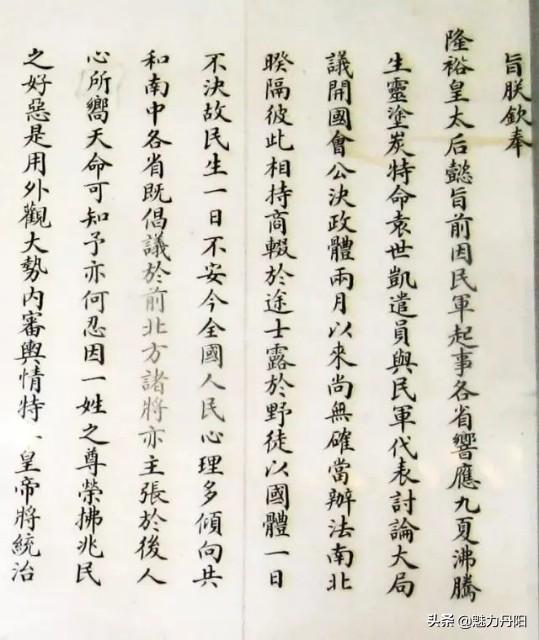 旨朕欽奉
隆裕皇太后懿旨前因民軍起事各省響應九夏沸騰
生靈塗炭特命袁世凱遣員與民軍代表討論大局
議開國會公決政體兩月以來尚無確當辦法南北
暌隔彼此相持商輟於途士露於野徒以國體一日
不決故民生一日不安今全國人民心理多傾向共
和南中各省既倡議於前北方諸將亦主張於後人
心所嚮天命可知予亦何忍因一姓之尊榮拂兆民
之好惡是用外觀大勢內審輿情特皇帝將統治
头条 @魅力丹阳